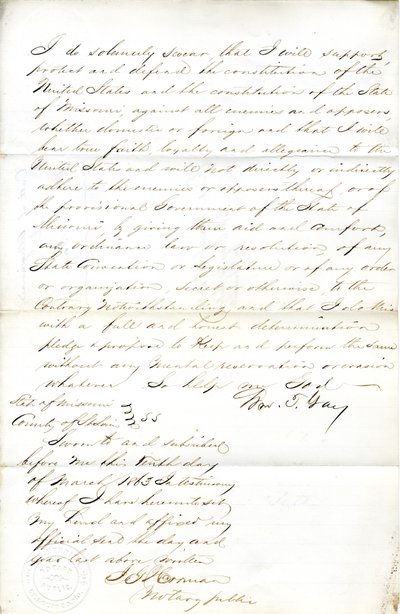 I do solemnly swear, that I will support,
protect and defend the constitution of the
United States and the constitution of the State
of Missouri, against all enemies and opposers,
whether domestic or foreign and that I will
bear true faith, loyalty and allegiance to the
United States and will not directly or indirectly
adhere to the enemies or opposers thereof or of
the provisional Government of the State of
Missouri, by giving them aid and comfort,
any ordinance law or resolution, of any
State Convention or legislature or of any order
or organization, secret or otherwise to the
Contrary Notwithstanding and that I do this
with a full and honest determination
pledge & purpose to Keep and perform the same
without any mental reservation or evasion
whatever So help me God
Wm. T. Gay
State of Missouri
SS
County of St Louis
Sworn to and subscribed
before me this Tenth day
of March 1863 In testimony
whereof I have hereunto set
my hand and affixed my
official seal the day and
year last above written
Notary public